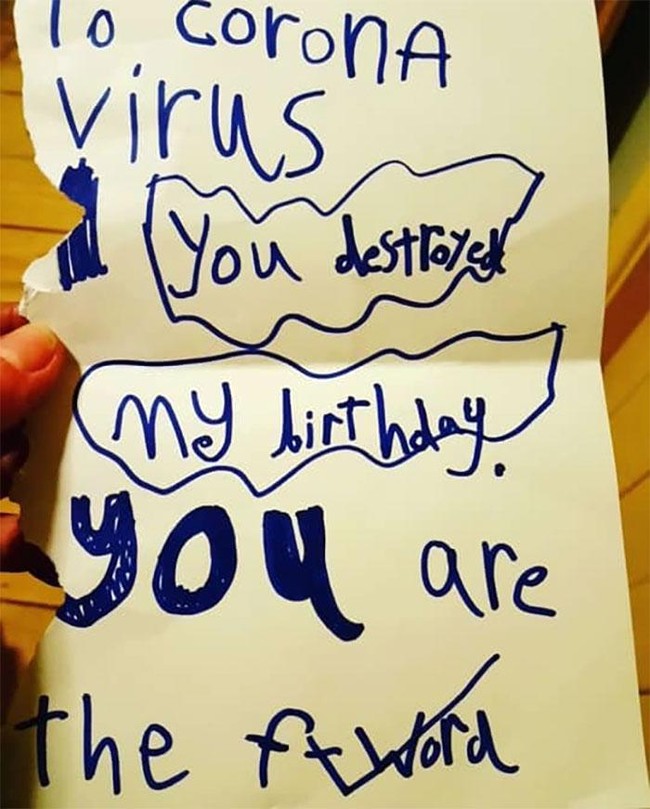 To corona
virus
You destroyed
my birthday.
you are
the f word